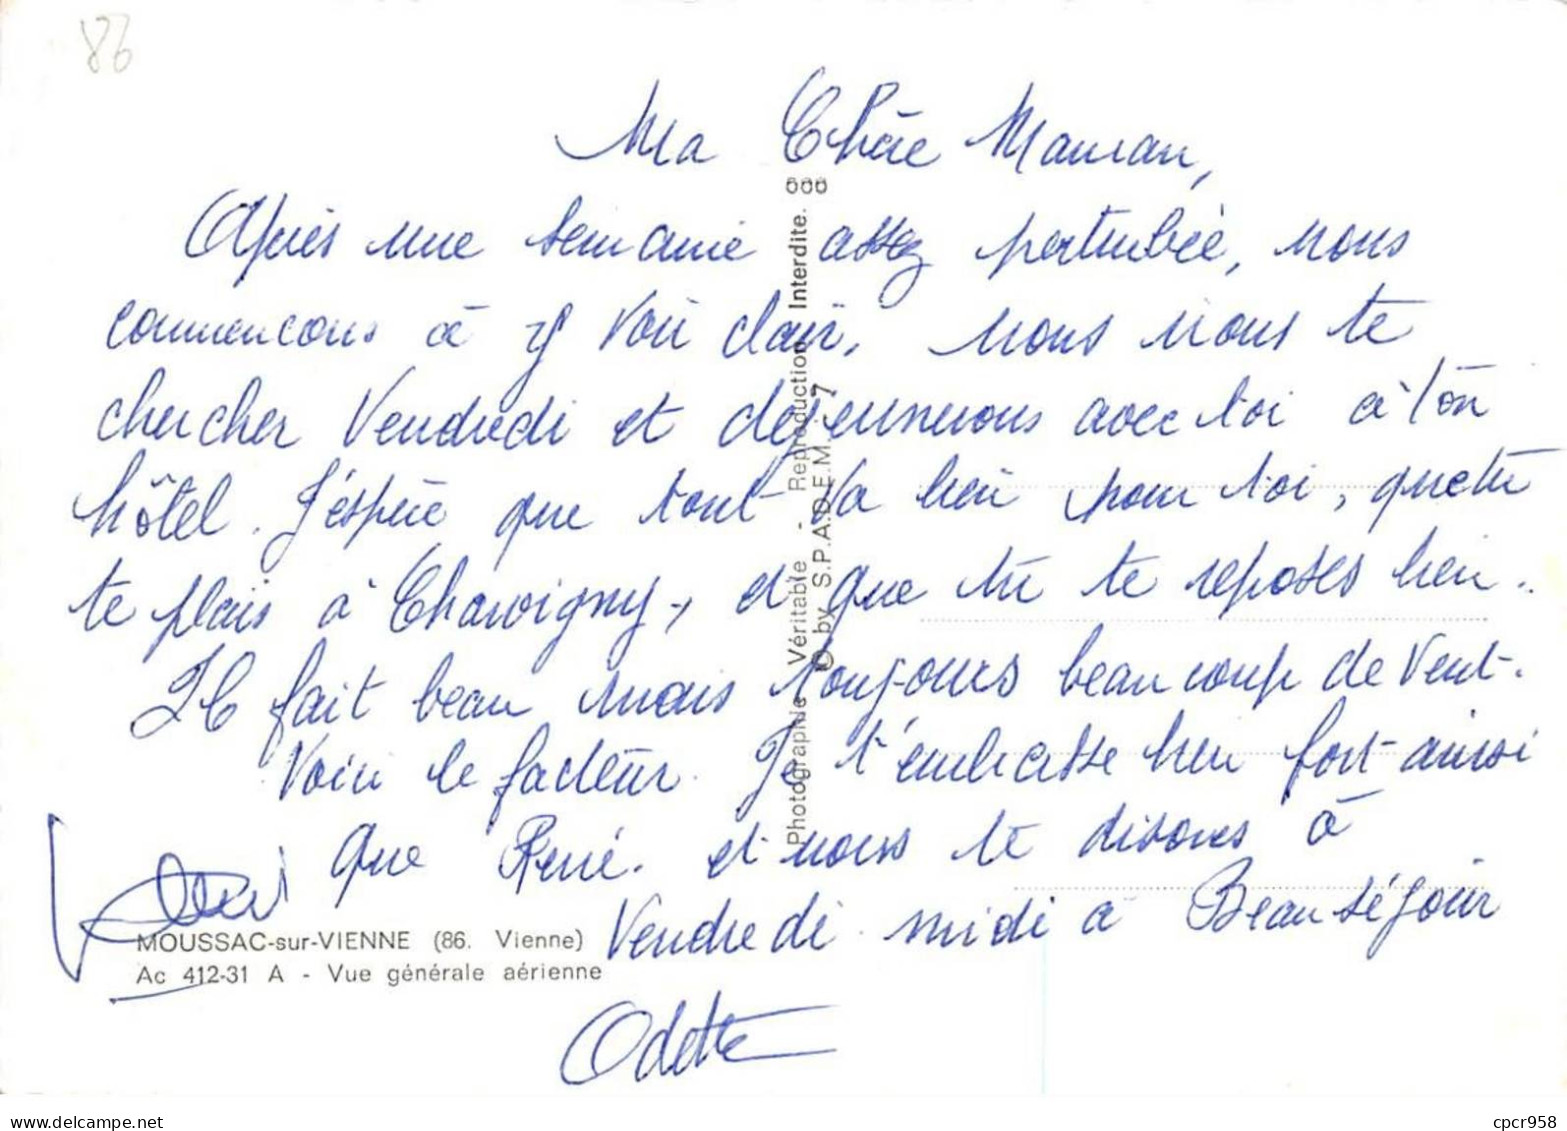 86
Ma Chère Maman,
Après une semaine assez perturbée, nous
commencons à y voir clair. nous irons te
chercher Vendredi et dejeunerons avec toi à ton
hôtel. J'espère que tout va bien pour toi, que tu
te plais à Chauvigny, et que tu te reposes bien.
Il fait beau mais toujours beaucoup de vent.
Voici le facteur. Je t'embrasse bien fort ainsi
que René. et nous te disons à
Vendredi midi à Beauséjour
Odette
MOUSSAC-sur-VIENNE (86. Vienne)
Ac 412-31 A - Vue générale aérienne
Photographie Véritable - Reproduction Interdite.
© by S.P.A.D.E.M.
delcampe.net
cpcr958